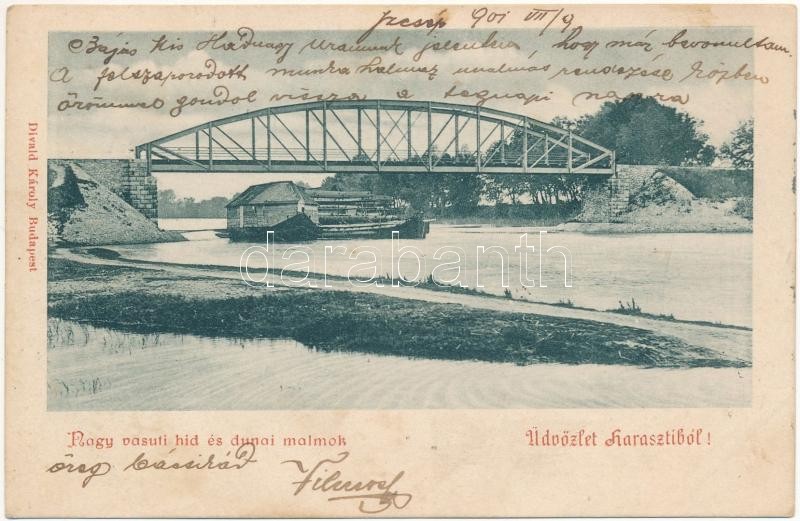 901 VII/9
Bájos kis Hadnagy Uramnak jelentem, hogy már bevonultam.
A felszaporodott munka halmaz unalmas rendezése közben
örömmel gondol vissza a tegnapi napra
darabanth.com
Divald Károly Budapest
Nagy vasuti hid és dunai malmok
Üdvözlet Harasztiból!
öreg
Vilmos